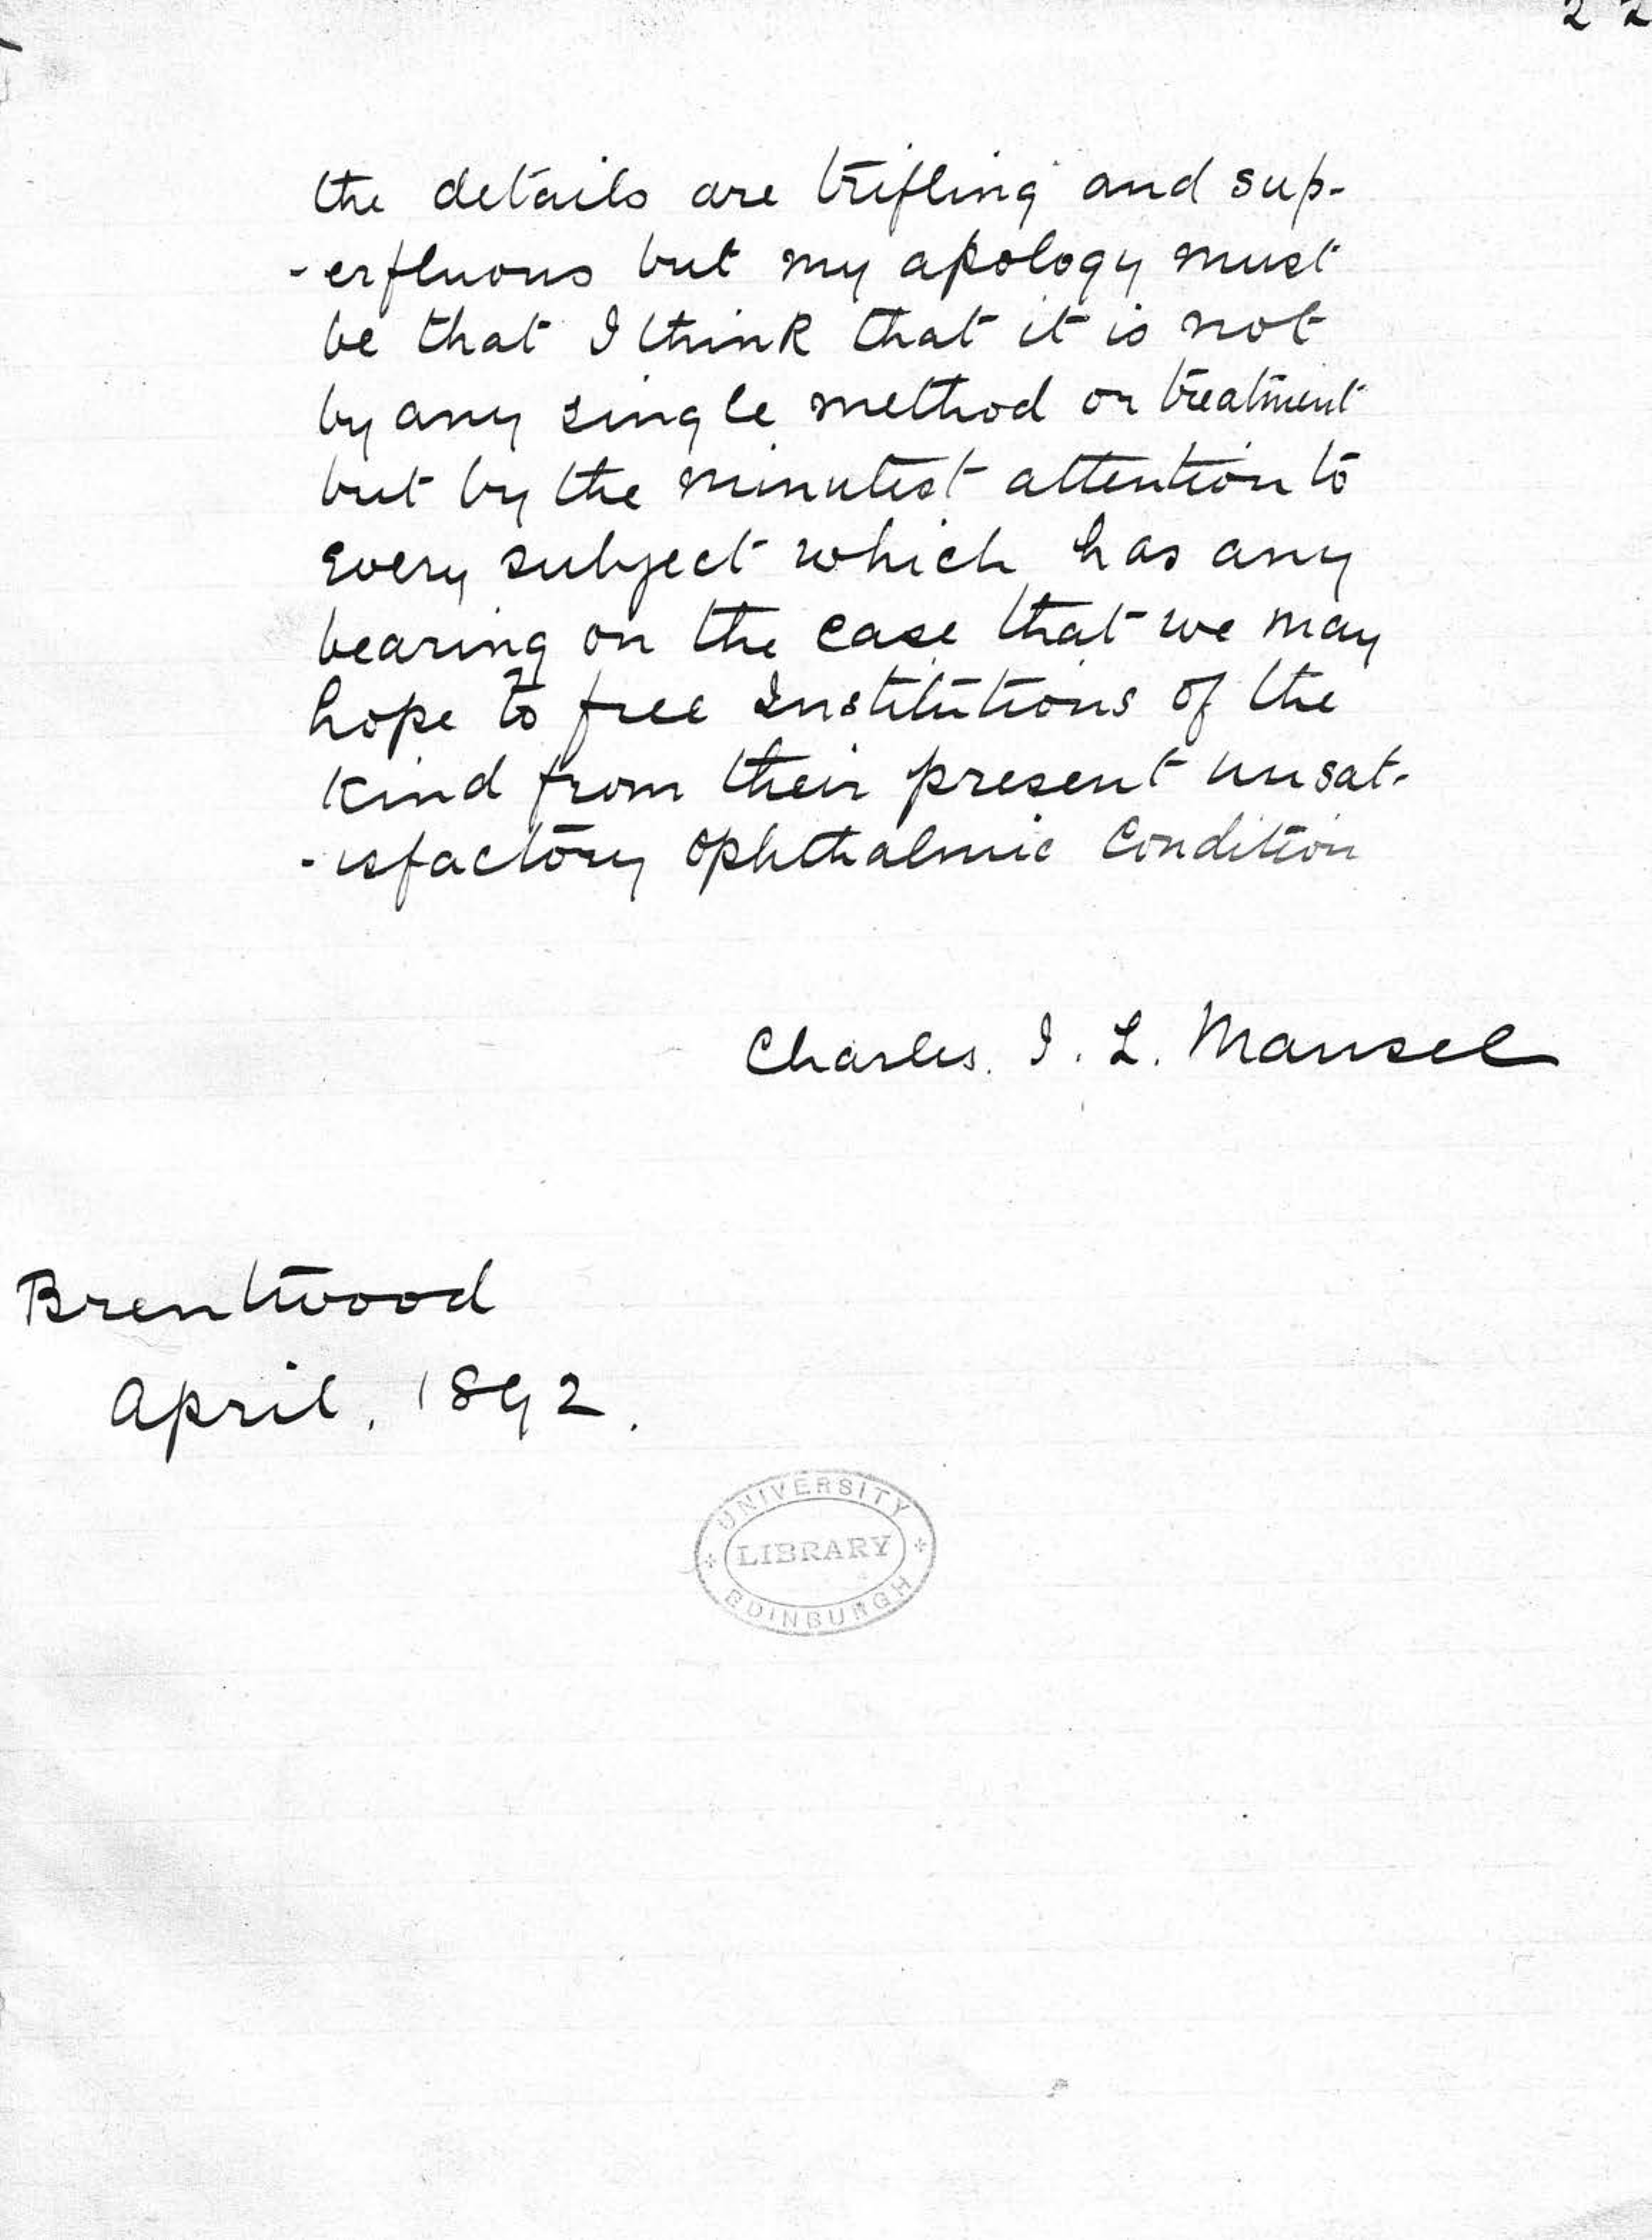 22
the details are trifling and sup-
-erfluous but my apology must
be that I think that it is not
by any single method or treatment
but by the minutest attention to
every subject which has any
bearing on the case that we may
hope to free Institutions of the
kind from their present unsat-
-isfactory Ophthalmic Condition
Charles. I. L. Mansel
Brentwood
April. 1892.
UNIVERSITY
LIBRARY
EDINBURGH